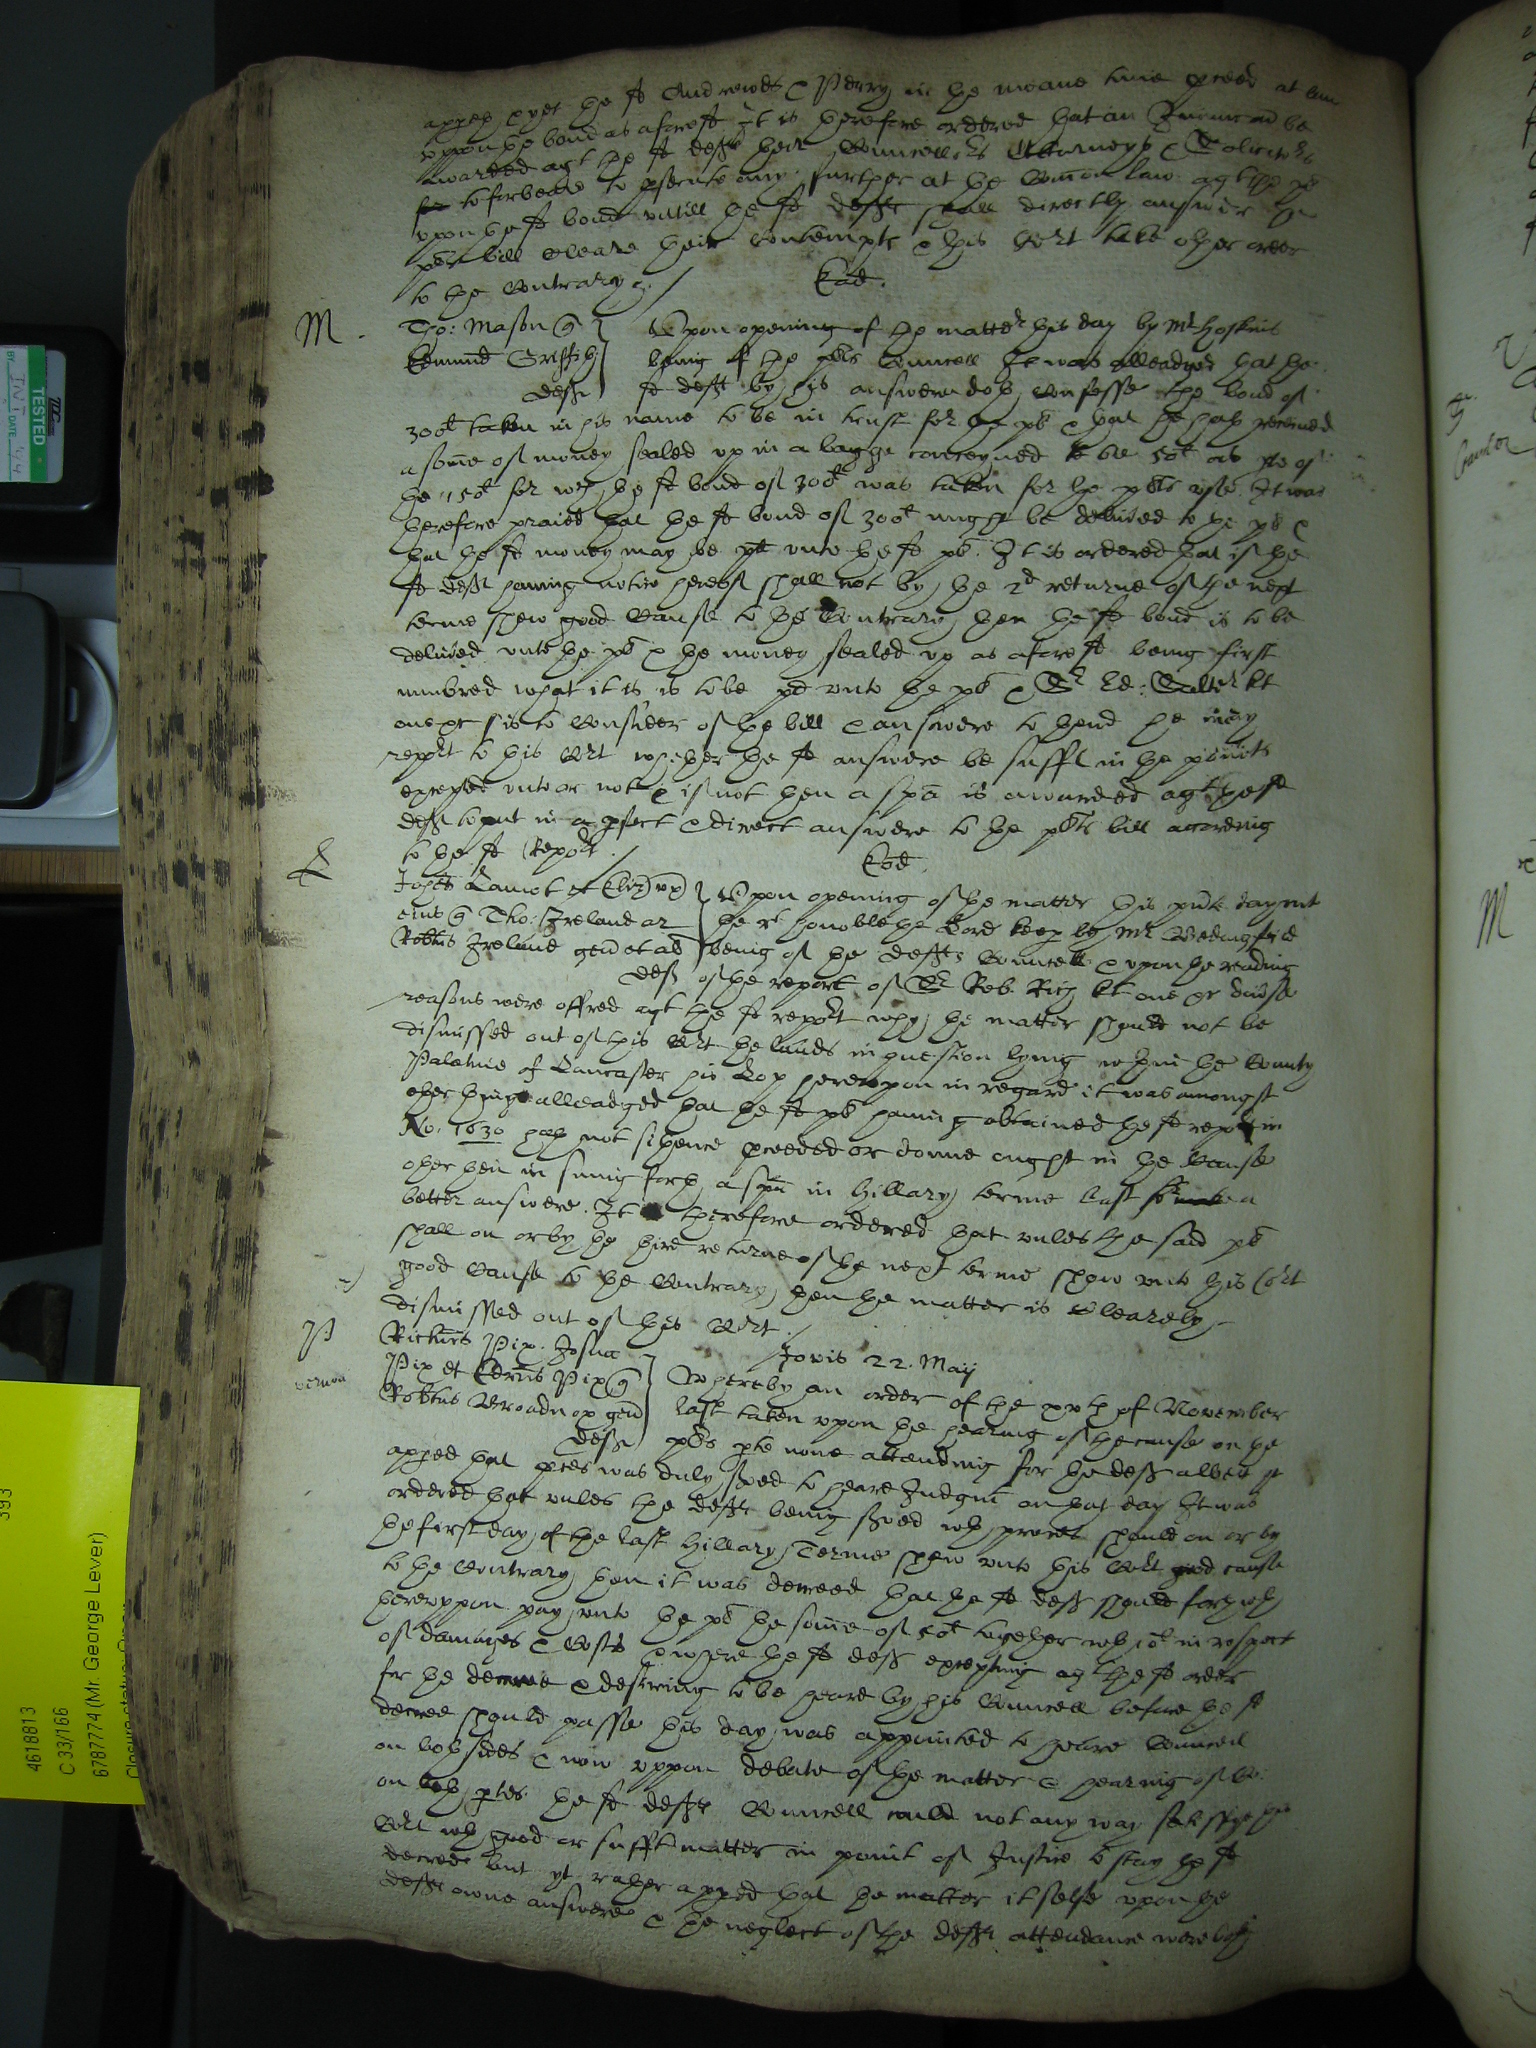 appeth & yet the sd Andrewes & Perry in the meane time pceed at law
uppon the bond as aforesd It is therefore ordered that an Iniunccon be
awarded agt the sd defts their Councellrs Attorneyes & Solicitrs
to forbeare to psecute any further at the Comon law agt the pl
upon the sd bond untill the sd defts shall directly answere the
pls bill cleare their contempts & this Cort take other order
to the contrary
Eod.
M
Tho: Mason q Upon opening of the matter this day by Mr Hoskins
Edmund Griffith being of the pls Councell It was alleadged that the
deft sd deft by his answere doth confesse the bond of
300l taken in his name to be in trust for the pl & that he hath received
a some of money sealed up in a bagge conceyved to be 50l as pte of
the 150l for wch the sd bond of 300l was taken for the pls use It was
therefore praied that the sd bond of 300l might be delived to the pl &
that the sd money may be pd unto the sd pl. It is ordered that if the
sd deft having notice hereof shall not by the 2d returne of the next
terme shew good cause to the contrary then the sd bond is to be
delived unto the pl & the money sealed up as aforesd being first
numbred what it is is to be pd unto the pl & Sr Ed: Salter kt
one &c is to consider of the bill & answere to thend he may
report to this Cort whether the sd answere be suffit in the points
excepted unto or not & if not then a spa is awarded agt the sd
deft to put in a pfect & direct answere to the pls bill according
to the sd Report.
Eod.
L
Johes Lamot et Eliz ux Upon opening of the matter this pnte day unt
eius q Tho: Ireland ar the rt honoble the Lord Keep by Mr Bedingfeild
Robtus Ireland gen et al being of the defts Councell & upon the reading
defts of the report of Sr Rob. Rich kt one &c divse
reasons were offred agt the sd report why the matter should not be
dismissed out of this Cort the lands in question lying wthin the County
Palatine of Lancaster his Lop thereupon in regard it was amongst
other things alleadged that the sd pl having obtained the sd report in
No. 1630 hath not sithence pceeded or donne ought in the cause
other then in suing forth a spa in Hillary terme last for a
better answere. It is therefore ordered that unles the said pl
shall on or by the third returne of the next terme shew unto this Cort
good cause to the contrary then the matter is clearely
dismissed out of this Cort.
P
Jovis 22. Maij
Vernon
Rickus Pix Josua
Pix et Edrus Pix q Whereby an order of the xxth of November
Robtus Broadnax gen last taken upon the hearing of the cause on the
deft pls pte none attending for the deft albeit it
apped that pces was duly sved to heare Iudgmt on that day It was
ordered that unles the deft being sved wth proces should on or by
the first day of the last Hillary Terme shew unto this Cort good cause
to the contrary then it was decreed that the sd deft should forthwth
thereuppon pay unto the pl the some of 50l together wth 10l in respect
of damages & costs & where the sd deft excepting agt the sd order
for the decree & desiring to be heard by his Councell before the sd
decree should passe this day was appointed to heare Councell
on both sides & now uppon debate of the matter & hearing of Co:
on both ptes the sd defts Councell could not any way satisfye the
Cort wth good or suffit matter in point of Iustice to stay the sd
decree but yt rather apped that the matter it selfe upon the
defts owne answere & the neglect of the defts attendance were both
TESTED
BY
DATE
393
4618813
C 33/166
6787774 (Mr. George Lever)
M